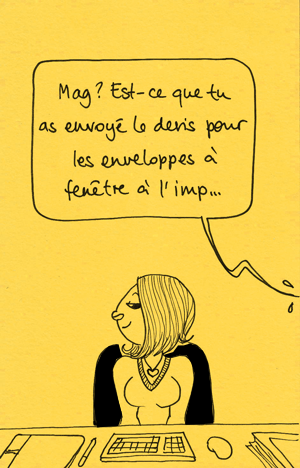 Mag? Est-ce que tu
as envoyé le devis pour
les enveloppes à
fenêtre à l'imp...